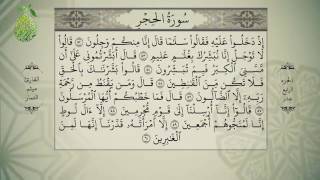 سُورَةُ الحِجْر
إِذْ دَخَلُوا۟ عَلَيْهِ فَقَالُوا۟ سَلَٰمًا قَالَ إِنَّا مِنكُمْ وَجِلُونَ ۝ قَالُوا۟
لَا تَوْجَلْ إِنَّا نُبَشِّرُكَ بِغُلَٰمٍ عَلِيمٍ ۝ قَالَ أَبَشَّرْتُمُونِى عَلَىٰٓ أَن
مَّسَّنِىَ ٱلْكِبَرُ فَبِمَ تُبَشِّرُونَ ۝ قَالُوا۟ بَشَّرْنَٰكَ بِٱلْحَقِّ
فَلَا تَكُن مِّنَ ٱلْقَٰنِطِينَ ۝ قَالَ وَمَن يَقْنَطُ مِن رَّحْمَةِ
رَبِّهِۦٓ إِلَّا ٱلضَّآلُّونَ ۝ قَالَ فَمَا خَطْبُكُمْ أَيُّهَا ٱلْمُرْسَلُونَ
۝ قَالُوٓا۟ إِنَّآ أُرْسِلْنَآ إِلَىٰ قَوْمٍ مُّجْرِمِينَ ۝ إِلَّآ ءَالَ لُوطٍ
إِنَّا لَمُنَجُّوهُمْ أَجْمَعِينَ ۝ إِلَّا ٱمْرَأَتَهُۥ قَدَّرْنَآ إِنَّهَا لَمِنَ
ٱلْغَٰبِرِينَ ۝
القارئ
ميثم
التمار
الجزء
الرابع
عشر